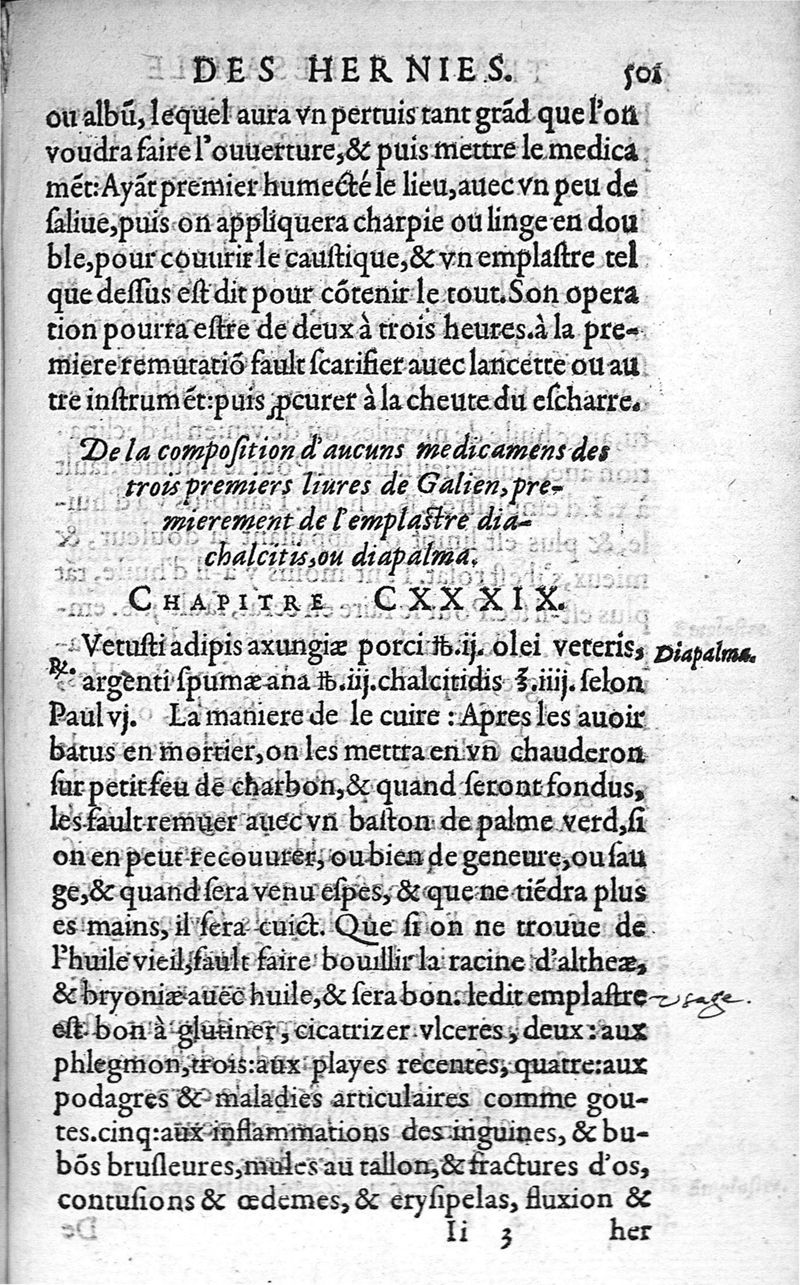 DES HERNIES. 501
ou albũ, lequel aura vn pertuis tant grãd que l'on
voudra faire l'ouuerture,& puis mettre le medica
mẽt: Ayãt premier humecté le lieu,auec vn peu de
saliue,puis on appliquera charpie ou linge en dou
ble,pour couurir le caustique,& vn emplastre tel
que dessus est dit pour cõtenir le tout.Son opera
tion pourra estre de deux à trois heures.à la pre-
miere remutatiõ fault scarifier auec lancette ou au
tre instrumẽt:puis ꝓcurer à la cheute du escharre.
De la composition d'aucuns medicamens des
trois premiers liures de Galien, pre-
mierement de l'emplastre dia-
chalcitis,ou diapalma.
CHAPITRE CXXXXIX.
℞. Vetusti adipis axungiæ porci ℔.ij. olei veteris,
Diapalma.
argenti spumæ ana ℔.iij.chalcitidis ℥.iiij. selon
Paul vj. La maniere de le cuire : Apres les auoir
batus en mortier,on les mettra en vn chauderon
sur petit feu de charbon,& quand seront fondus,
les fault remuer auec vn baston de palme verd,si
on en peut recouurer, ou bien de geneure,ou sau
ge,& quand sera venu espes, & que ne tiẽdra plus
es mains, il sera cuict. Que si on ne trouue de
l'huile vieil,fault faire bouillir la racine d'altheæ,
& bryoniæ auec huile,& sera bon. ledit emplastre
usage.
est bon à glutiner, cicatrizer vlceres, deux: aux
phlegmon,trois:aux playes recentes, quatre:aux
podagres & maladies articulaires comme gou-
tes.cinq:aux inflammations des inguines, & bu-
bõs brusleures,mules au tallon,& fractures d'os,
contusions & œdemes, & erysipelas, fluxion &
Ii 3 her